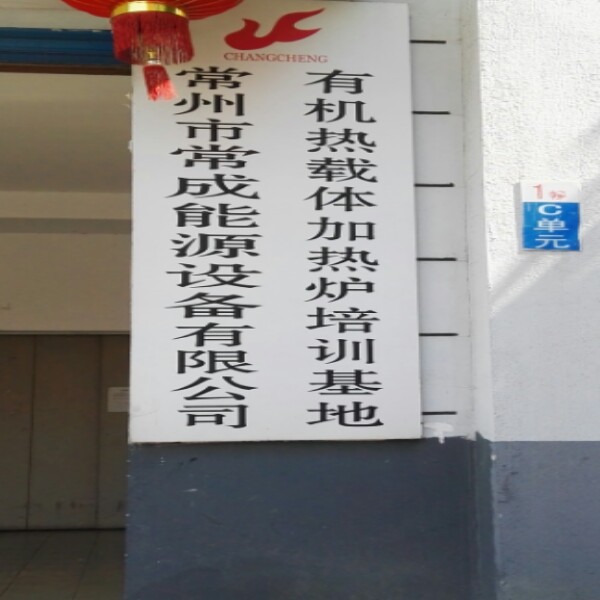 CHANGCHENG
有机热载体加热炉培训基地
常州市常成能源设备有限公司
1幢
C单元